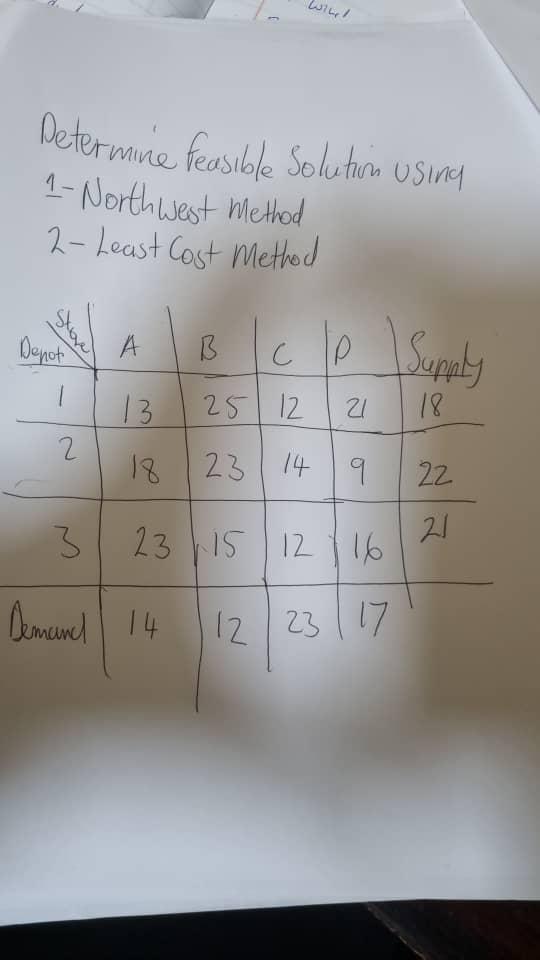 Determine feasible Solution using
1- Northwest Method
2- Least Cost Method
Store
Depot A B C D Supply
1 13 25 12 21 18
2 18 23 14 9 22
3 23 15 12 16 21
Demand 14 12 23 17